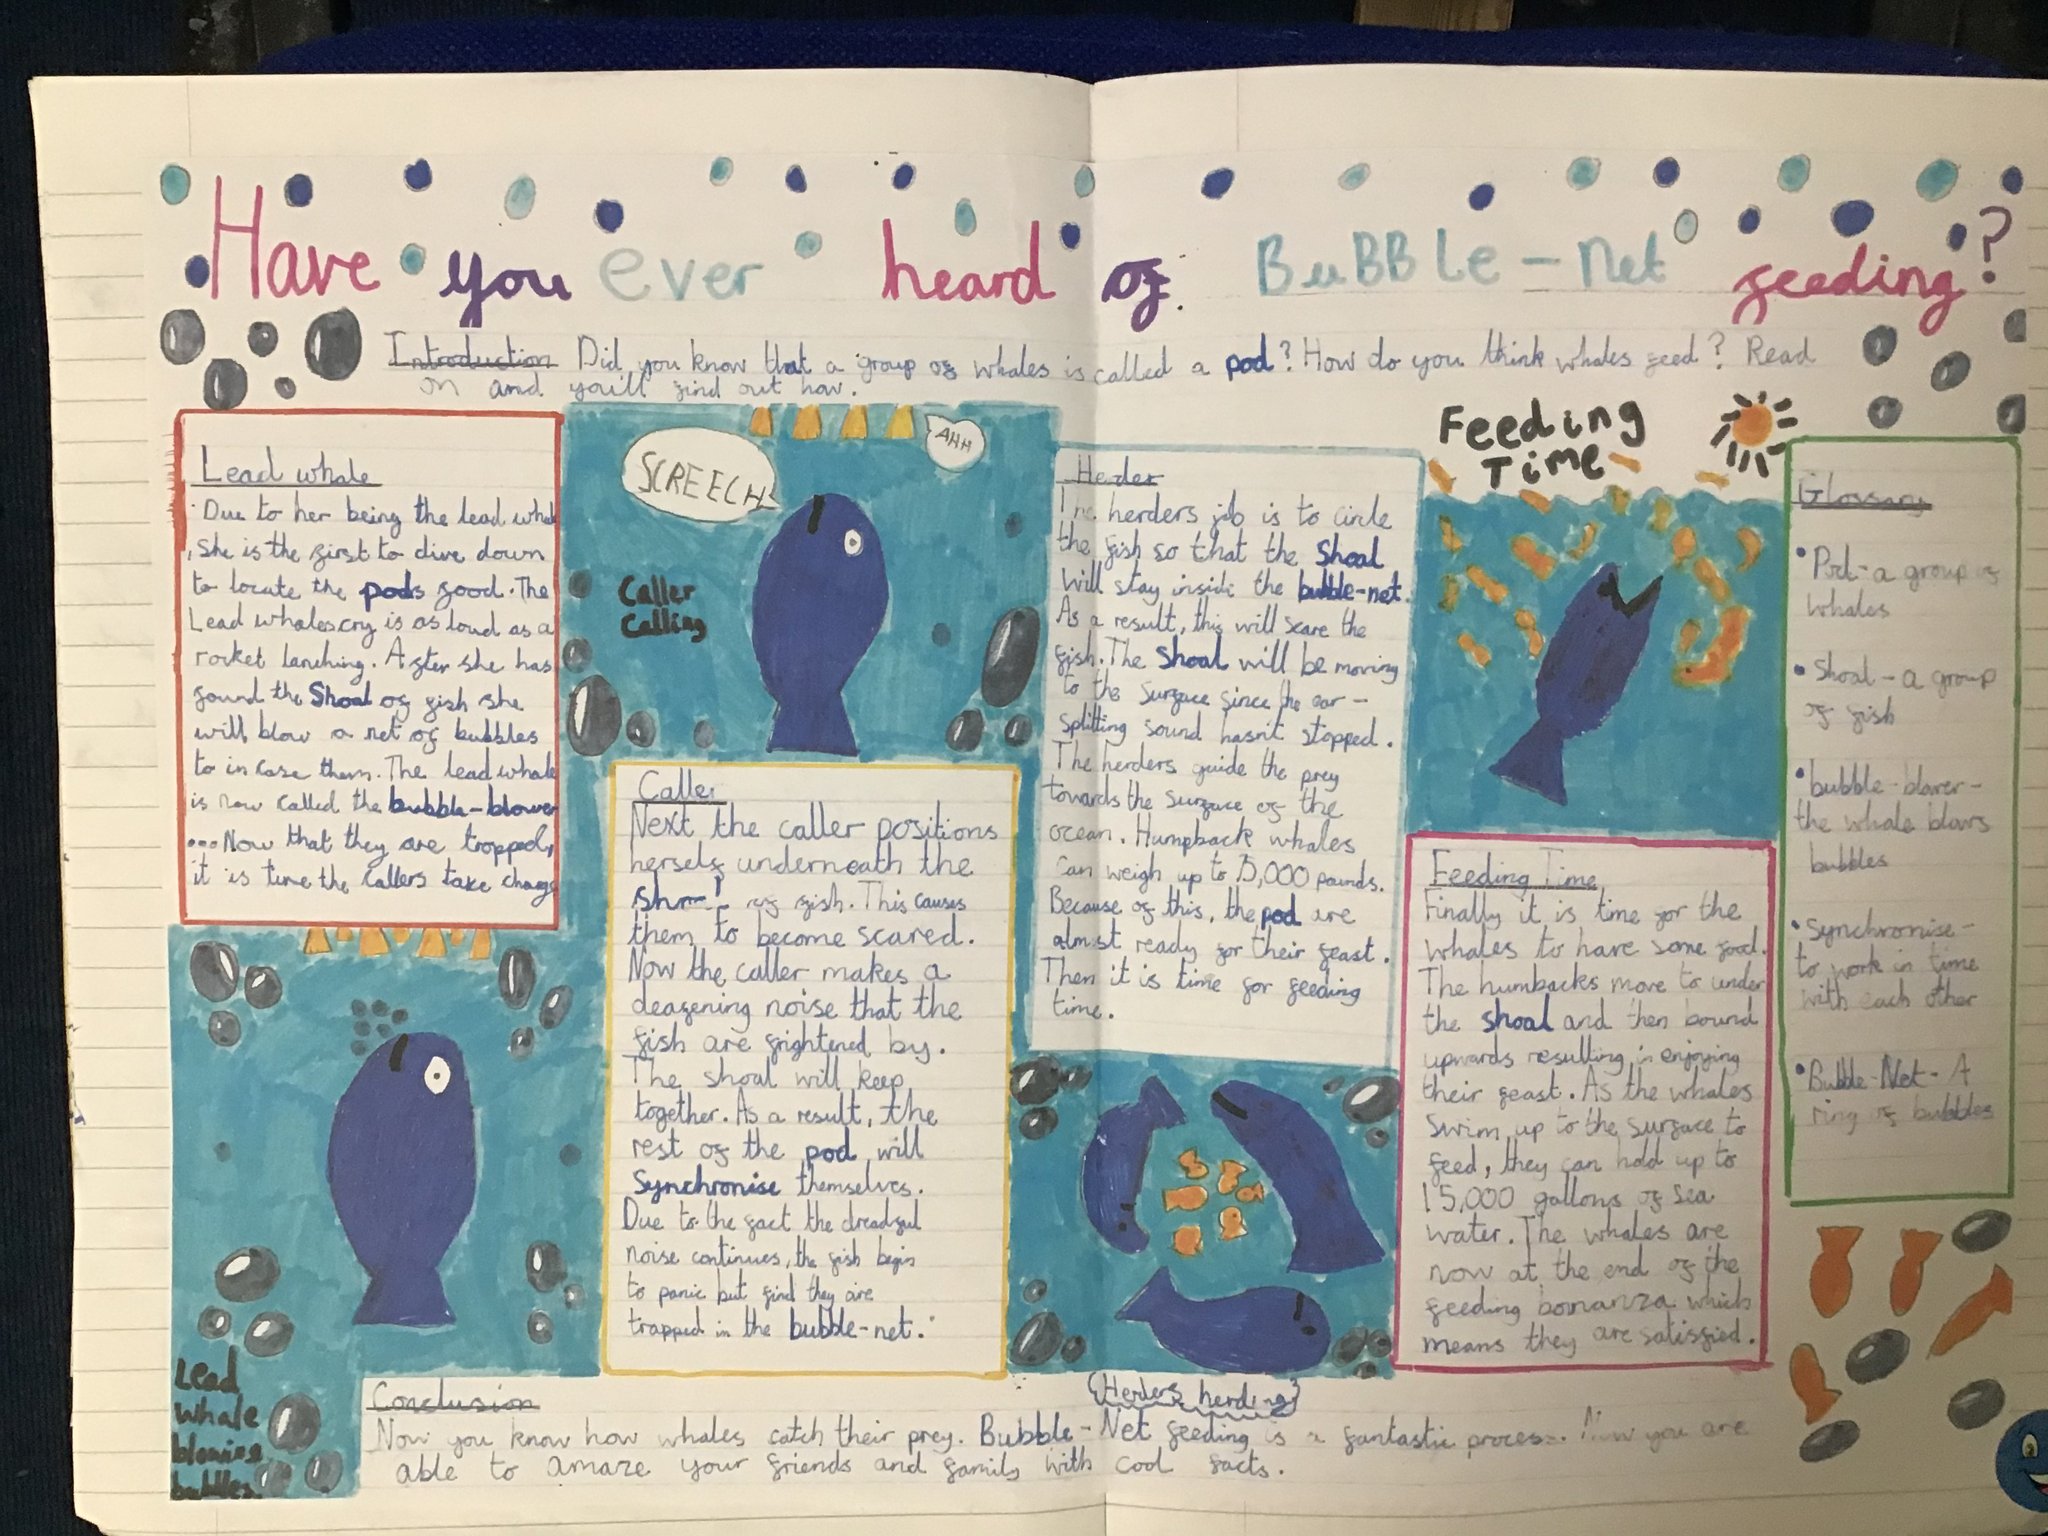 Have you ever heard of BuBBle-net feeding?
Introduction Did you know that a group of whales is called a pod? How do you think whales feed? Read
on and you'll find out how.
Lead whale
Due to her being the lead whale
, she is the first to dive down
to locate the pods food. The
Lead whales cry is as loud as a
rocket lanching. After she has
found the Shoal of fish she
will blow a net of bubbles
to in case them. The lead whale
is now called the bubble-blower
...Now that they are trapped,
it is time the callers take charge
SCREECH
AHH
Caller
Calling
Caller
Next the caller positions
herself underneath the
of fish. This causes
them to become scared.
Now the caller makes a
deafening noise that the
fish are frightened by.
The shoal will keep
together. As a result, the
rest of the pod will
Synchronise themselves.
Due to the fact the dreadful
noise continues, the fish begin
to panic but find they are
trapped in the bubble-net.
Lead
whale
blowing
bubbles.
Herder
The herders job is to circle
the fish so that the Shoal
will stay inside the bubble-net.
As a result, this will scare the
fish. The Shoal will be moving
to the surface since the ear-
splitting sound hasn't stopped.
The herders guide the prey
towards the surface of the
ocean. Humpback whales
can weigh up to pounds.
Because of this, the pod are
almost ready for their feast.
Then it is time for feeding
time.
{Herders herding}
Feeding
Time
Feeding Time
Finally it is time for the
whales to have some food.
The humbacks move to under
the shoal and then bound
upwards resulting in enjoying
their feast. As the whales
swim up to the surface to
feed, they can hold up to
15,000 gallons of sea
water. The whales are
now at the end of the
feeding bonanza which
means they are satisfied.
Glossary
• Pod - a group of
whales
• Shoal - a group
of fish
• bubble-blower -
the whale blows
bubbles
• Synchronise -
to work in time
with each other
• Bubble-Net - A
ring of bubbles
Conclusion
Now you know how whales catch their prey. Bubble-Net feeding is a fantastic process. Now you are
able to amaze your friends and family with cool facts.